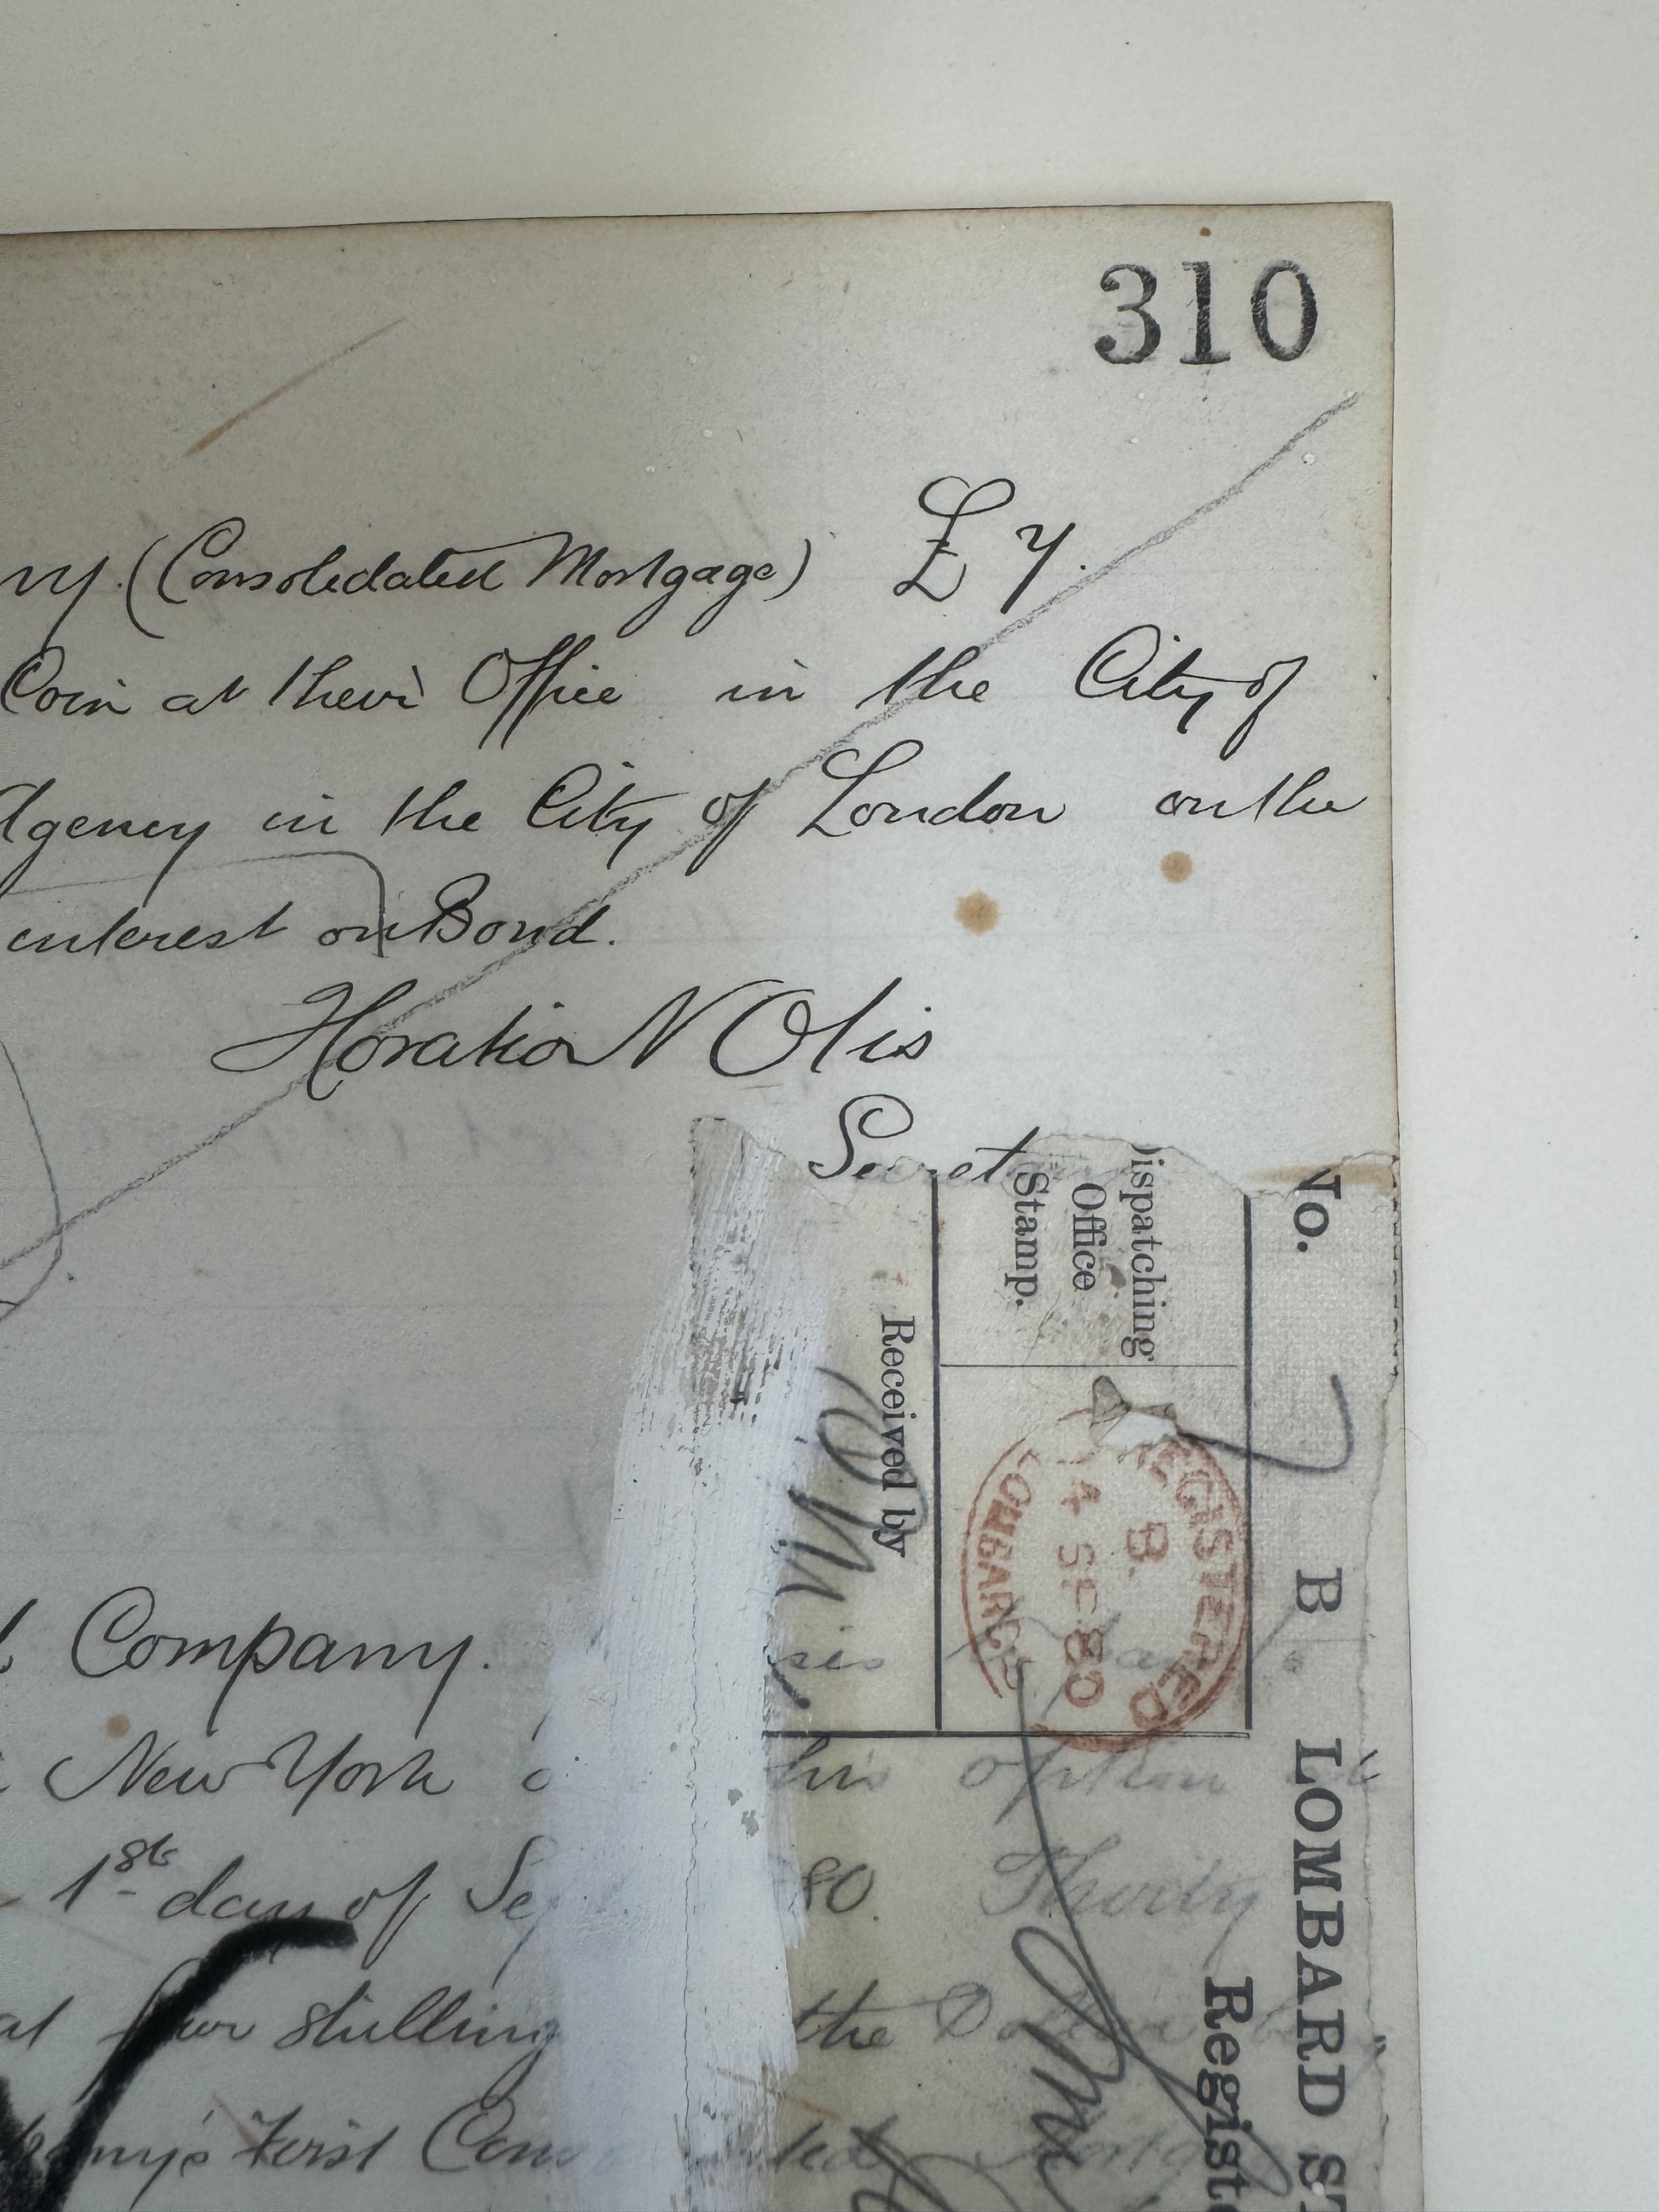 310
(Consolidated Mortgage) £7.
Coin at their Office in the City of
Agency in the City of London on the
interest on Bond.
Horatio N Otis
Secret
No. B LOMBARD ST
Dispatching
Office
Stamp.
REGISTERED
B.
14 SP 80
LOMBARD S
Received by
Company.
New York his option
1st day of Se 80. Thirty
at four shilling the Dollar
First Con
Registe